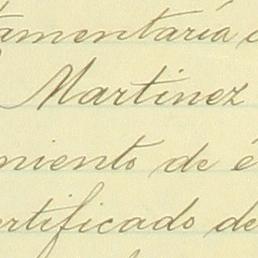 tamentaría
Martinez
miento de é
ertificado de